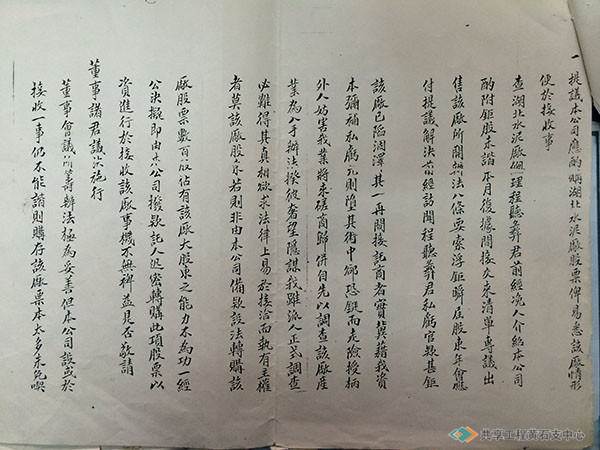 一提議本公司應酌購湖北水泥廠股票俾易悉該廠情形
便於接收事
查湖北水泥廠經理程聽彝君前經浼人介紹本公司
酌附鉅股未諧本月復據間接交來清單專議出
售該廠所開辦法八條要索浮鉅瞬屆股東年會應
付提議解決當經訪聞程聽彝君私虧官欵甚鉅
該廠已陷涸澤其一再間接託商者實冀藉我資
本彌補私虧允則墮其術中郤恐鋌而走險授柄
外人妨害我業將來磋商歸併自先以調查該廠產
業為入手辦法揆彼奢望隱謀我雖派人正式調查
必難得其真相欲求法律上易於接洽而執有主權
者莫該廠股東若則非由本公司備欵設法轉購該
廠股票數百股佔有該廠大股東之能力不為功一經
公決擬即由本公司撥欵託人迅密轉購此項股票以
資進行於接收該廠事機不無裨益是否敬請
董事諸君議決施行
董事會議所籌辦法極為妥善但本公司設或於
接收一事仍不能諧則購存該廠票本太多未免喫
共享工程黃石支中心